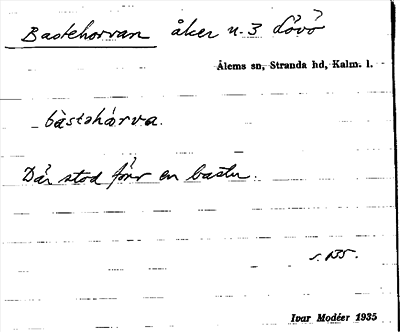 Bastehorvan åker n. 3 Lövö
Ålems sn, Stranda hd, Kalm. l.
bàstəhårva.
Där stod förr en bastu.
s. 135.
Ivar Modéer 1935